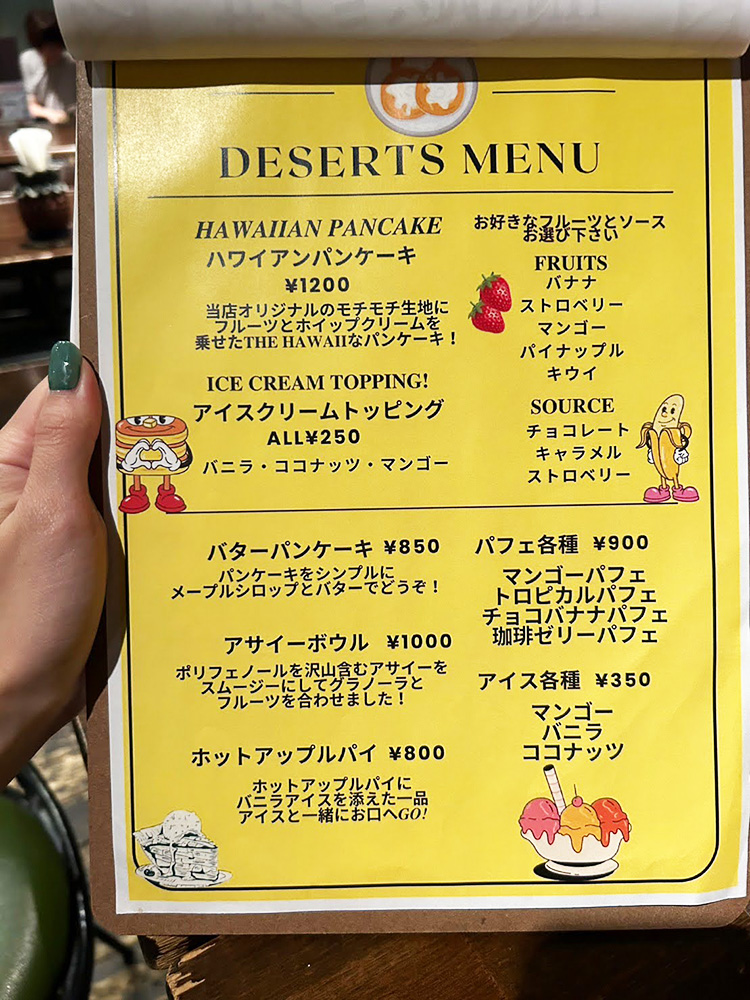 DESERTS MENU
HAWAIIAN PANCAKE
ハワイアンパンケーキ
¥1200
当店オリジナルのモチモチ生地に
フルーツとホイップクリームを
乗せたTHE HAWAIIなパンケーキ！
ICE CREAM TOPPING!
アイスクリームトッピング
ALL¥250
バニラ・ココナッツ・マンゴー
お好きなフルーツとソース
お選び下さい
FRUITS
バナナ
ストロベリー
マンゴー
パイナップル
キウイ
SOURCE
チョコレート
キャラメル
ストロベリー
バターパンケーキ ¥850
パンケーキをシンプルに
メープルシロップとバターでどうぞ！
アサイーボウル ¥1000
ポリフェノールを沢山含むアサイーを
スムージーにしてグラノーラと
フルーツを合わせました！
ホットアップルパイ ¥800
ホットアップルパイに
バニラアイスを添えた一品
アイスと一緒にお口へGO!
パフェ各種 ¥900
マンゴーパフェ
トロピカルパフェ
チョコバナナパフェ
珈琲ゼリーパフェ
アイス各種 ¥350
マンゴー
バニラ
ココナッツ